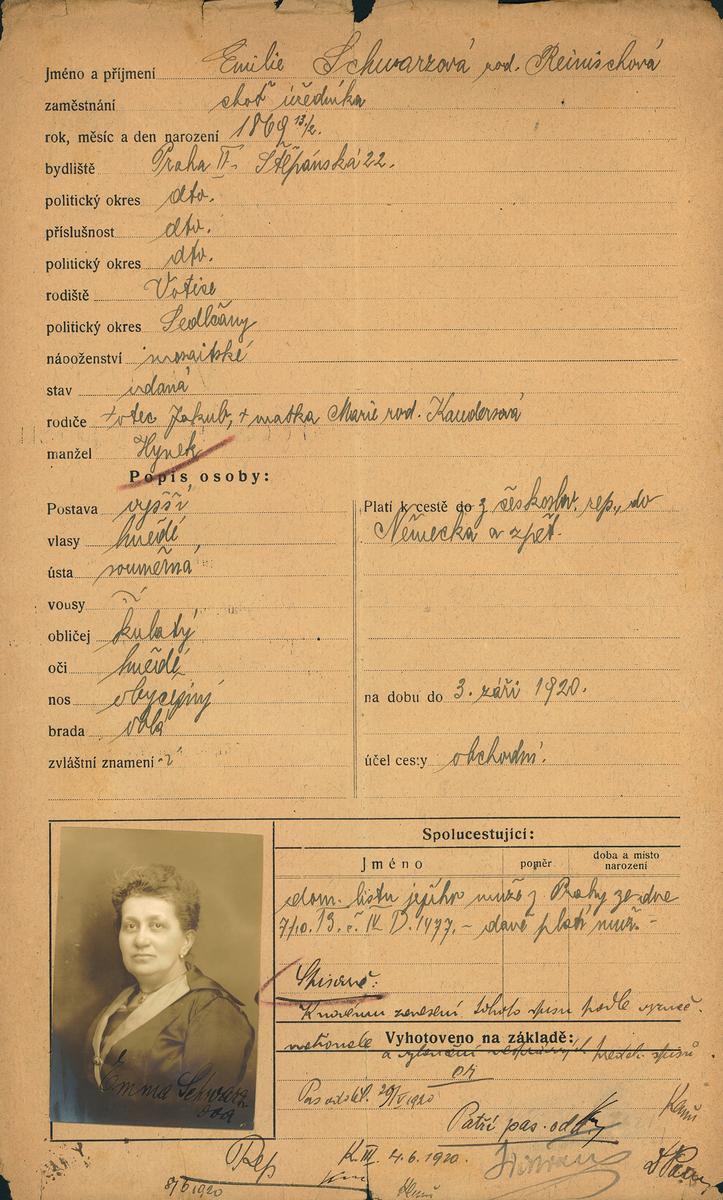 Jméno a příjmení Emilie Schwarzová rod. Reinischová
zaměstnání choť úředníka
rok, měsíc a den narození 1869 13/2.
bydliště Praha II. Štěpánská 22.
politický okres dto.
příslušnost dto.
politický okres dto.
rodiště Votice
politický okres Sedlčany
náooženství mosaitské
stav vdaná
rodiče + otec Jakub, + matka Marie rod. Kaudersová
manžel Hynek
Popis osoby:
Postava vyšší
vlasy hnědé
ústa souměrná
vousy
obličej kulatý
oči hnědé
nos obyčejný
brada oblá
zvláštní znamení
Platí k cestě do z českoslov. rep., do
Německa a zpět.
na dobu do 3. září 1920.
účel cesty obchodní.
Spolucestující:
Jméno poměr doba a místo narození
dom. listu jejího muže z Prahy ze dne
7/10. 13. č. IV. D. 1477. – dávě platí muž. –
Spisově:
K novému zanesení tohoto spisu podle
Vyhotoveno na základě:
nationale
a předch. spisů
Pas odděl. 29/V 1920
Patří pas. odd.
Emma Schwarz
ová
K. III. 4.6.1920
8/6 1920